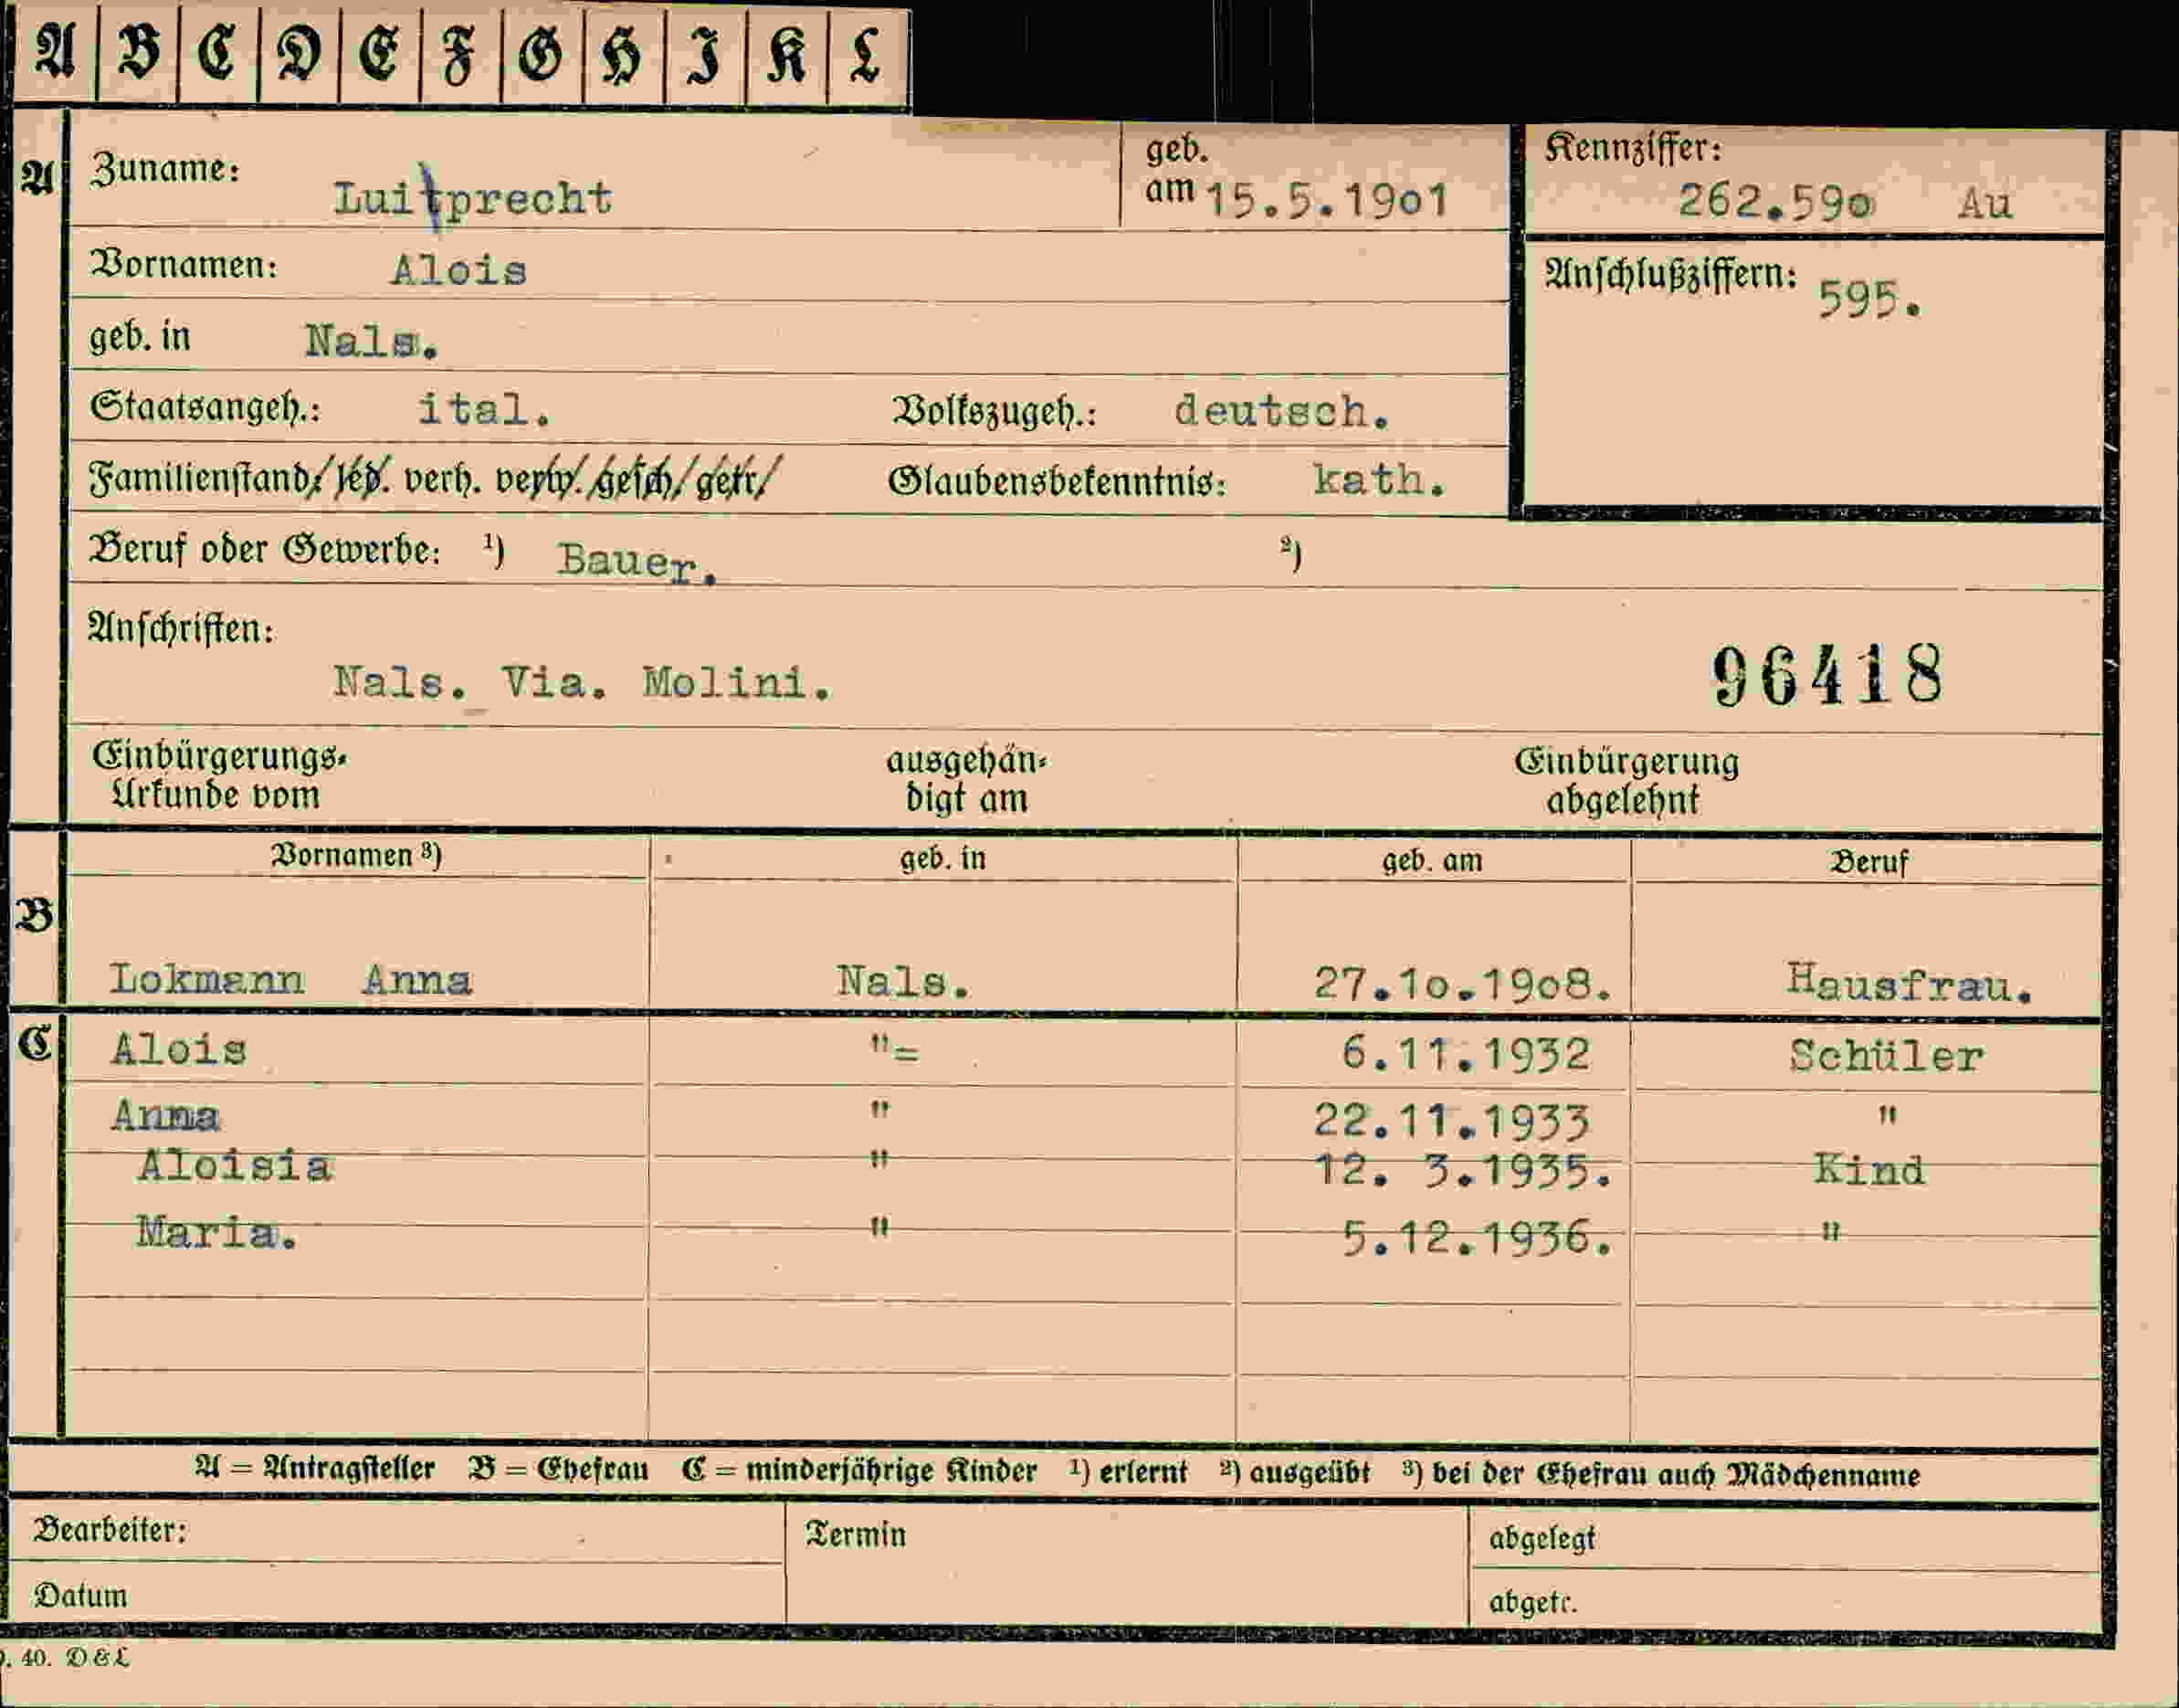 A B C D E F G H I K L
A Zuname: Luitprecht geb. am 15.5.19o1 Kennziffer: 262.59o Au
Vornamen: Alois Anschlußziffern: 595.
geb. in Nals.
Staatsangeh.: ital. Volkszugeh.: deutsch.
Familienstand: led. verh. verw. gesch. getr. Glaubensbekenntnis: kath.
Beruf oder Gewerbe: ¹) Bauer. ²)
Anschriften:
Nals. Via. Molini. 96418
Einbürgerungs- ausgehän- Einbürgerung
Urkunde vom digt am abgelehnt
Vornamen ³) geb. in geb. am Beruf
B
Lokmann Anna Nals. 27.1o.19o8. Hausfrau.
C Alois "= 6.11.1932 Schüler
Anna " 22.11.1933 "
Aloisia " 12. 3.1935. Kind
Maria. " 5.12.1936. "
A = Antragsteller B = Ehefrau C = minderjährige Kinder ¹) erlernt ²) ausgeübt ³) bei der Ehefrau auch Mädchenname
Bearbeiter: Termin abgelegt
Datum abgetr.
. 40. D & L